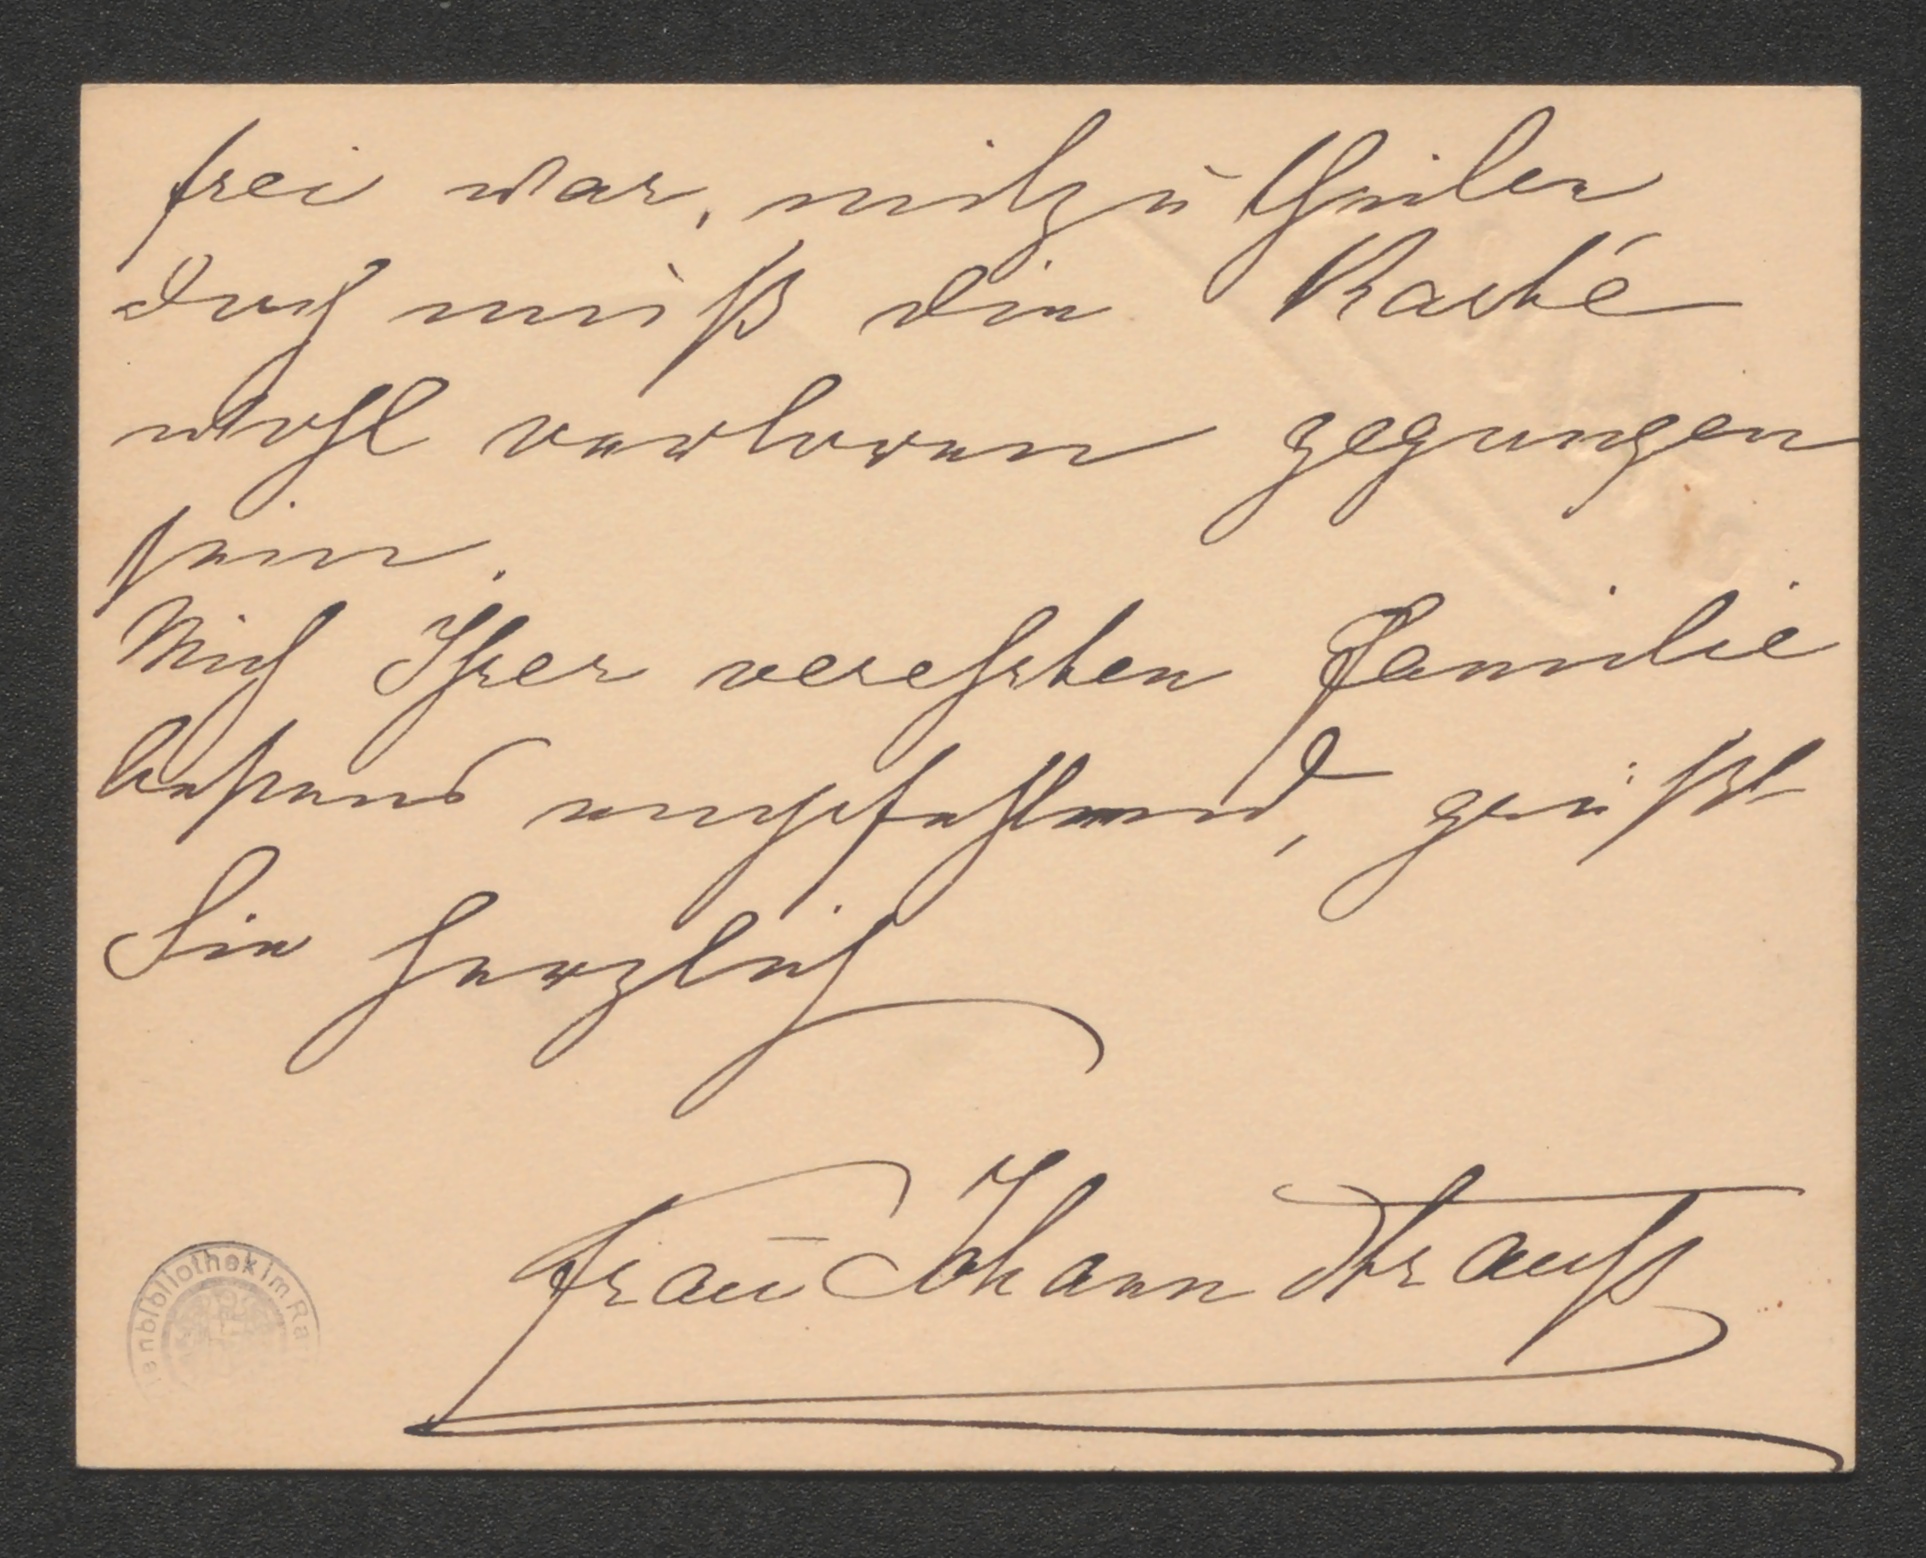 frei war, mitzutheilen
doch muß die Karte
wohl verloren gegangen
sein.
Mich Ihrer verehrten Familie
bestens empfehlend, grüßt
Sie herzlich
Frau Johann Strauß
enbibliothek im Ra